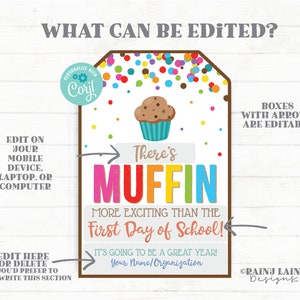 WHAT CAN BE EDITED?
PERSONALIZE WITH
Corjl
EDIT ON
YOUR
MOBILE
DEVICE,
LAPTOP, OR
COMPUTER
BOXES
WITH ARROW
ARE EDITAB
There's
MUFFIN
MORE EXCITING THAN THE
First Day of School!
IT'S GOING TO BE A GREAT YEAR!
Your Name/Organization
EDIT HERE
OR DELETE
OULD PREFER TO
WRITE THIS SECTION
©RAINJ LAIN
Designs